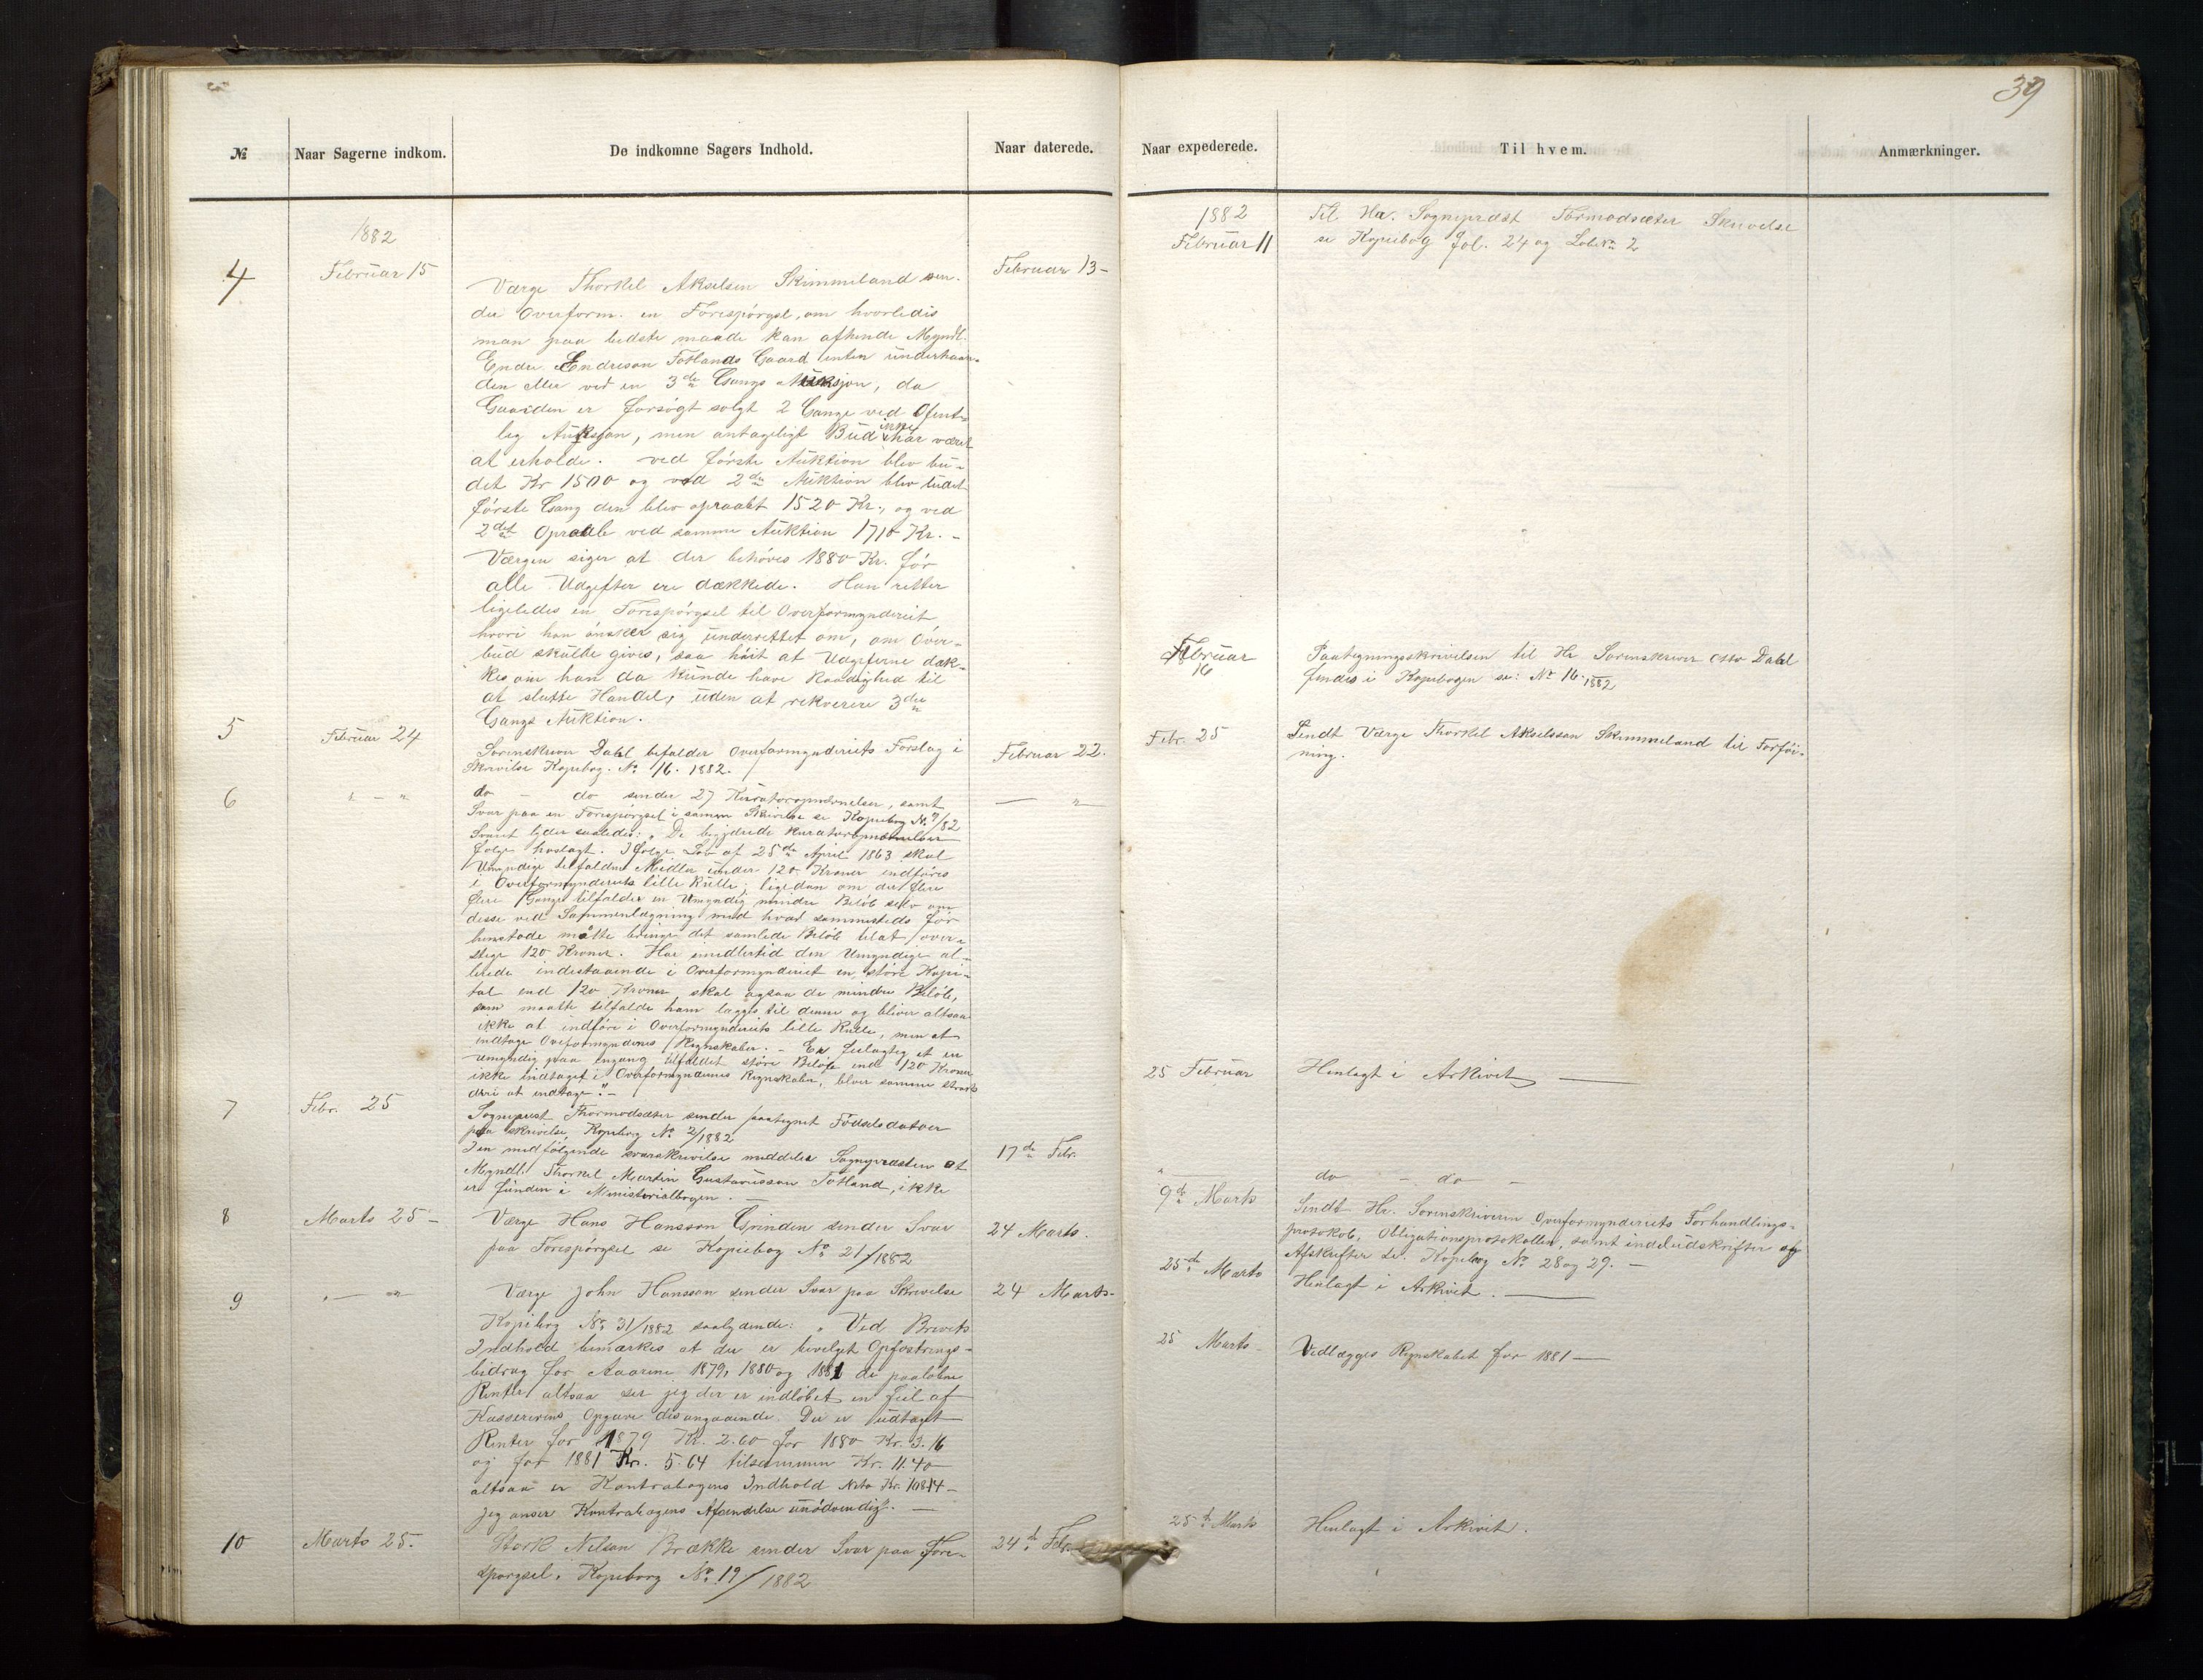 39
№
Naar Sagerne indkom.
De indkomne Sagers Indhold.
Naar daterede.
1882
4
Februar 15
Februar 13 -
Værge Thorkel Akselsen Skimmeland sen-
der Overform. en Forespörgsl, om hvorledis
man paa bedste maade kan afhende Myndl.
Endre Endreson Totlands Gaard enten underhaan-
den eller ved en 3die Gangs Auksjon, da
Gaarden er forsögt solgt 2 Gange ved Ofent-
lig Auksjon, men antageligt Bud ikke har været
at erholde. ved förste Auktion blev bu-
det Kr 1500 og ved 2den Auktion blev budet
förste Gang den blev opraabt 1520 Kr., og ved
2det Opraab ved samme Auktion 1710 Kr. -
Værgen siger at der behöves 1880 Kr. för
alle Udgifter ere dækkede. Han retter
ligeledes en Forespörgsel til Overformynderiet
hvori han önsker sig underrettet om, om Över-
bud skulde gives, saa höit at Udgifterne dæk-
kes om han da kunde have Raadighed til
at slutte Handel, uden at rekverere 3die
Gangs Auktion.
5
Februar 24
Februar 22.
Sorenskriver Dahl bifalder Overformynderiets Forslag i
Skrivelse Kopibog. No 16. 1882.
6
" - "
— "
do - do sender 27 Kuratoropnævnelser, samt
Svar paa en Forespörgsel i samme Skrivelse se Kopibog No 7/82
Svaret lyder saaledes: „De begjærede Kuratoropnævnelser
fölge hoslagt. Ifölge Lov af 25de April 1863 skal
Umyndige tilfaldne Midler under 120 Kroner indföres
i Overformynderiets lille Rulle; ligedan om der flere
flere Gange tilfalder en Umyndig mindre Belöb selv om
desse ved Sammenlægning med hvad sammesteds för
henstode måtte bringe det samlede Belöb til at over-
stige 120 Kroner. Har imidlertid den Umyndige al-
lerede indestaaende i Overformynderiet en större Kapi-
tal end 120 Kroner skal ogsaa de mindre Belöb,
som maatte tilfalde ham lægges til denne og bliver altsaa
ikke at indföre i Overformynderiets lille Rulle, men at
indtage Overformynderens Regnskaber. - Er feilagtig et en
Umyndig paa engang tilfaldet större Belöb end 120 Kroner
ikke indtaget i Overformyndernes Regnskaber, bliver samme strax
deri at indtage". -
7
Febr. 25
17de Febr.
Sognepræst Thormodsæter sender paategnet Födselsdatoer
paa skrivelse, Kopibog No 2/1882
I en medfölgende svarskrivelse meddeles Sognepræsten at
Myndl. Thorkel Martin Gustavusson Totland, ikke
er funden i Ministerialbogen. —
8
Marts 25 -
24 Marts.
Værge Hans Hansson Grinden sender Svar
paa Forespörgsel se Kopiebog No 21/1882
9
" — "
24 Marts -
Værge John Hansson sender Svar paa Skrivelse
Kopibog No 31/1882 saalydende: „Ved Brevets
Indhold bemærkes at der er bevilget Opfostrings-
bidrag for Aarene 1879, 1880 og 1881 de paalöbne
Renter altsaa ser jeg der er indlöbet en Feil af
Kassererens Opgave desangaaende. Der er udtaget
Renter for 1879 Kr. 2.60 for 1880 Kr. 3.16
og for 1881 Kr. 5.64 tilsammen Kr. 11.40
altsaa er Kontrabogens Indhold Neto Kr. 108.14 -
jeg anser Kontrabogens Afsendelse unödvendig". —
10
Marts 25.
24de Febr.
Stork Nilson Brække sender Svar paa Fore-
spörgsel. Kopibog No. 19/1882
Naar expederede.
Til hvem.
Anmærkninger.
1882
Februar 11
Til Hr. Sognepræst Tormodsæter Skrivelse
se Kopiebog fol. 24 og Löbe No 2
Februar
16
Paategningsskrivelsen til Hr Sorenskriver Otto Dahl
findes i Kopibogen se: No 16. 1882
Febr. 25
Sendt Værge Thorkel Akselsson Skimmeland til Forföi-
ning.
25 Februar
Henlagt i Arkivet —
"
do - do -
9de Marts
Sendt Hr. Sorenskriveren Overformynderiets Forhandlings-
protokol, Obligationsprotokollen, samt indeludskrifter og
Afskrifter se. Kopibog No 28 og 29. -
25de Marts
Henlagt i Arkivet. —
25 Marts -
Vedlægges Regnskabet for 1881 —
25de Marts
Henlagt i Arkivet.